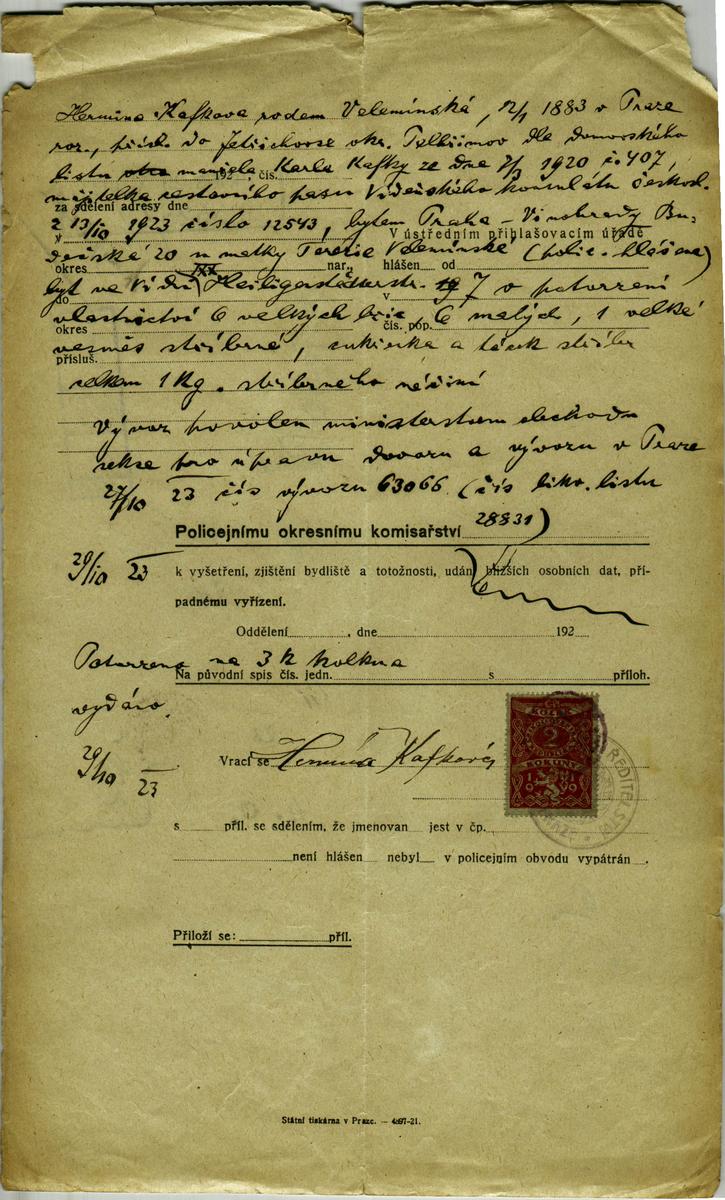 Hermina Kafkova rodem Velemínská, 12/1 1883 v Praze
roz., přísl. do okr. dle domovského
listu manžela Karla Kafky ze dne 7/3 1920 č 407,
192 čís.
majitelka cestovního pasu Vídeňského konsulátu českosl.
za sdělení adresy dne
z 13/10 1923 číslo 12543, bytem Praha - Vinohrady Bu-
V ústředním přihlašovacím úřadě
dečská 20 u matky Terezie Velemínské (polic. hlášena)
okres nar. hlášen od
byt ve Vídni XIX Heiligenstädterstr. 7 o potvrzení
do v
vlastnictví 6 velkých lžic, 6 malých, 1 velké
okres čís. pop.
vesměs stříbrné, cukřenka a tácek stříbr
přísluš.
celkem 1 Kg. stříbrného náčiní
Vývoz povolen ministerstvem obchodu
sekse pro úpravu dovozu a vývozu v Praze
27/10 23 čís vývozu 63066 (čís listu
28831)
Policejnímu okresnímu komisařství
29/10 23
k vyšetření, zjištění bydliště a totožnosti, udání bližších osobních dat, pří-
padnému vyřízení.
Oddělení , dne 192
Potvrzeno na 3 K kolkem
Na původní spis čís. jedn. s příloh.
vydáno.
29/10 23
Vrací se Hermina Kafková
KOLEK
2
KORUNY
1919
ŘEDITELSTVÍ
s příl. se sdělením, že jmenovan jest v čp.
není hlášen nebyl v policejním obvodu vypátrán .
Přiloží se: příl.
Státní tiskárna v Praze. — 4897-21.